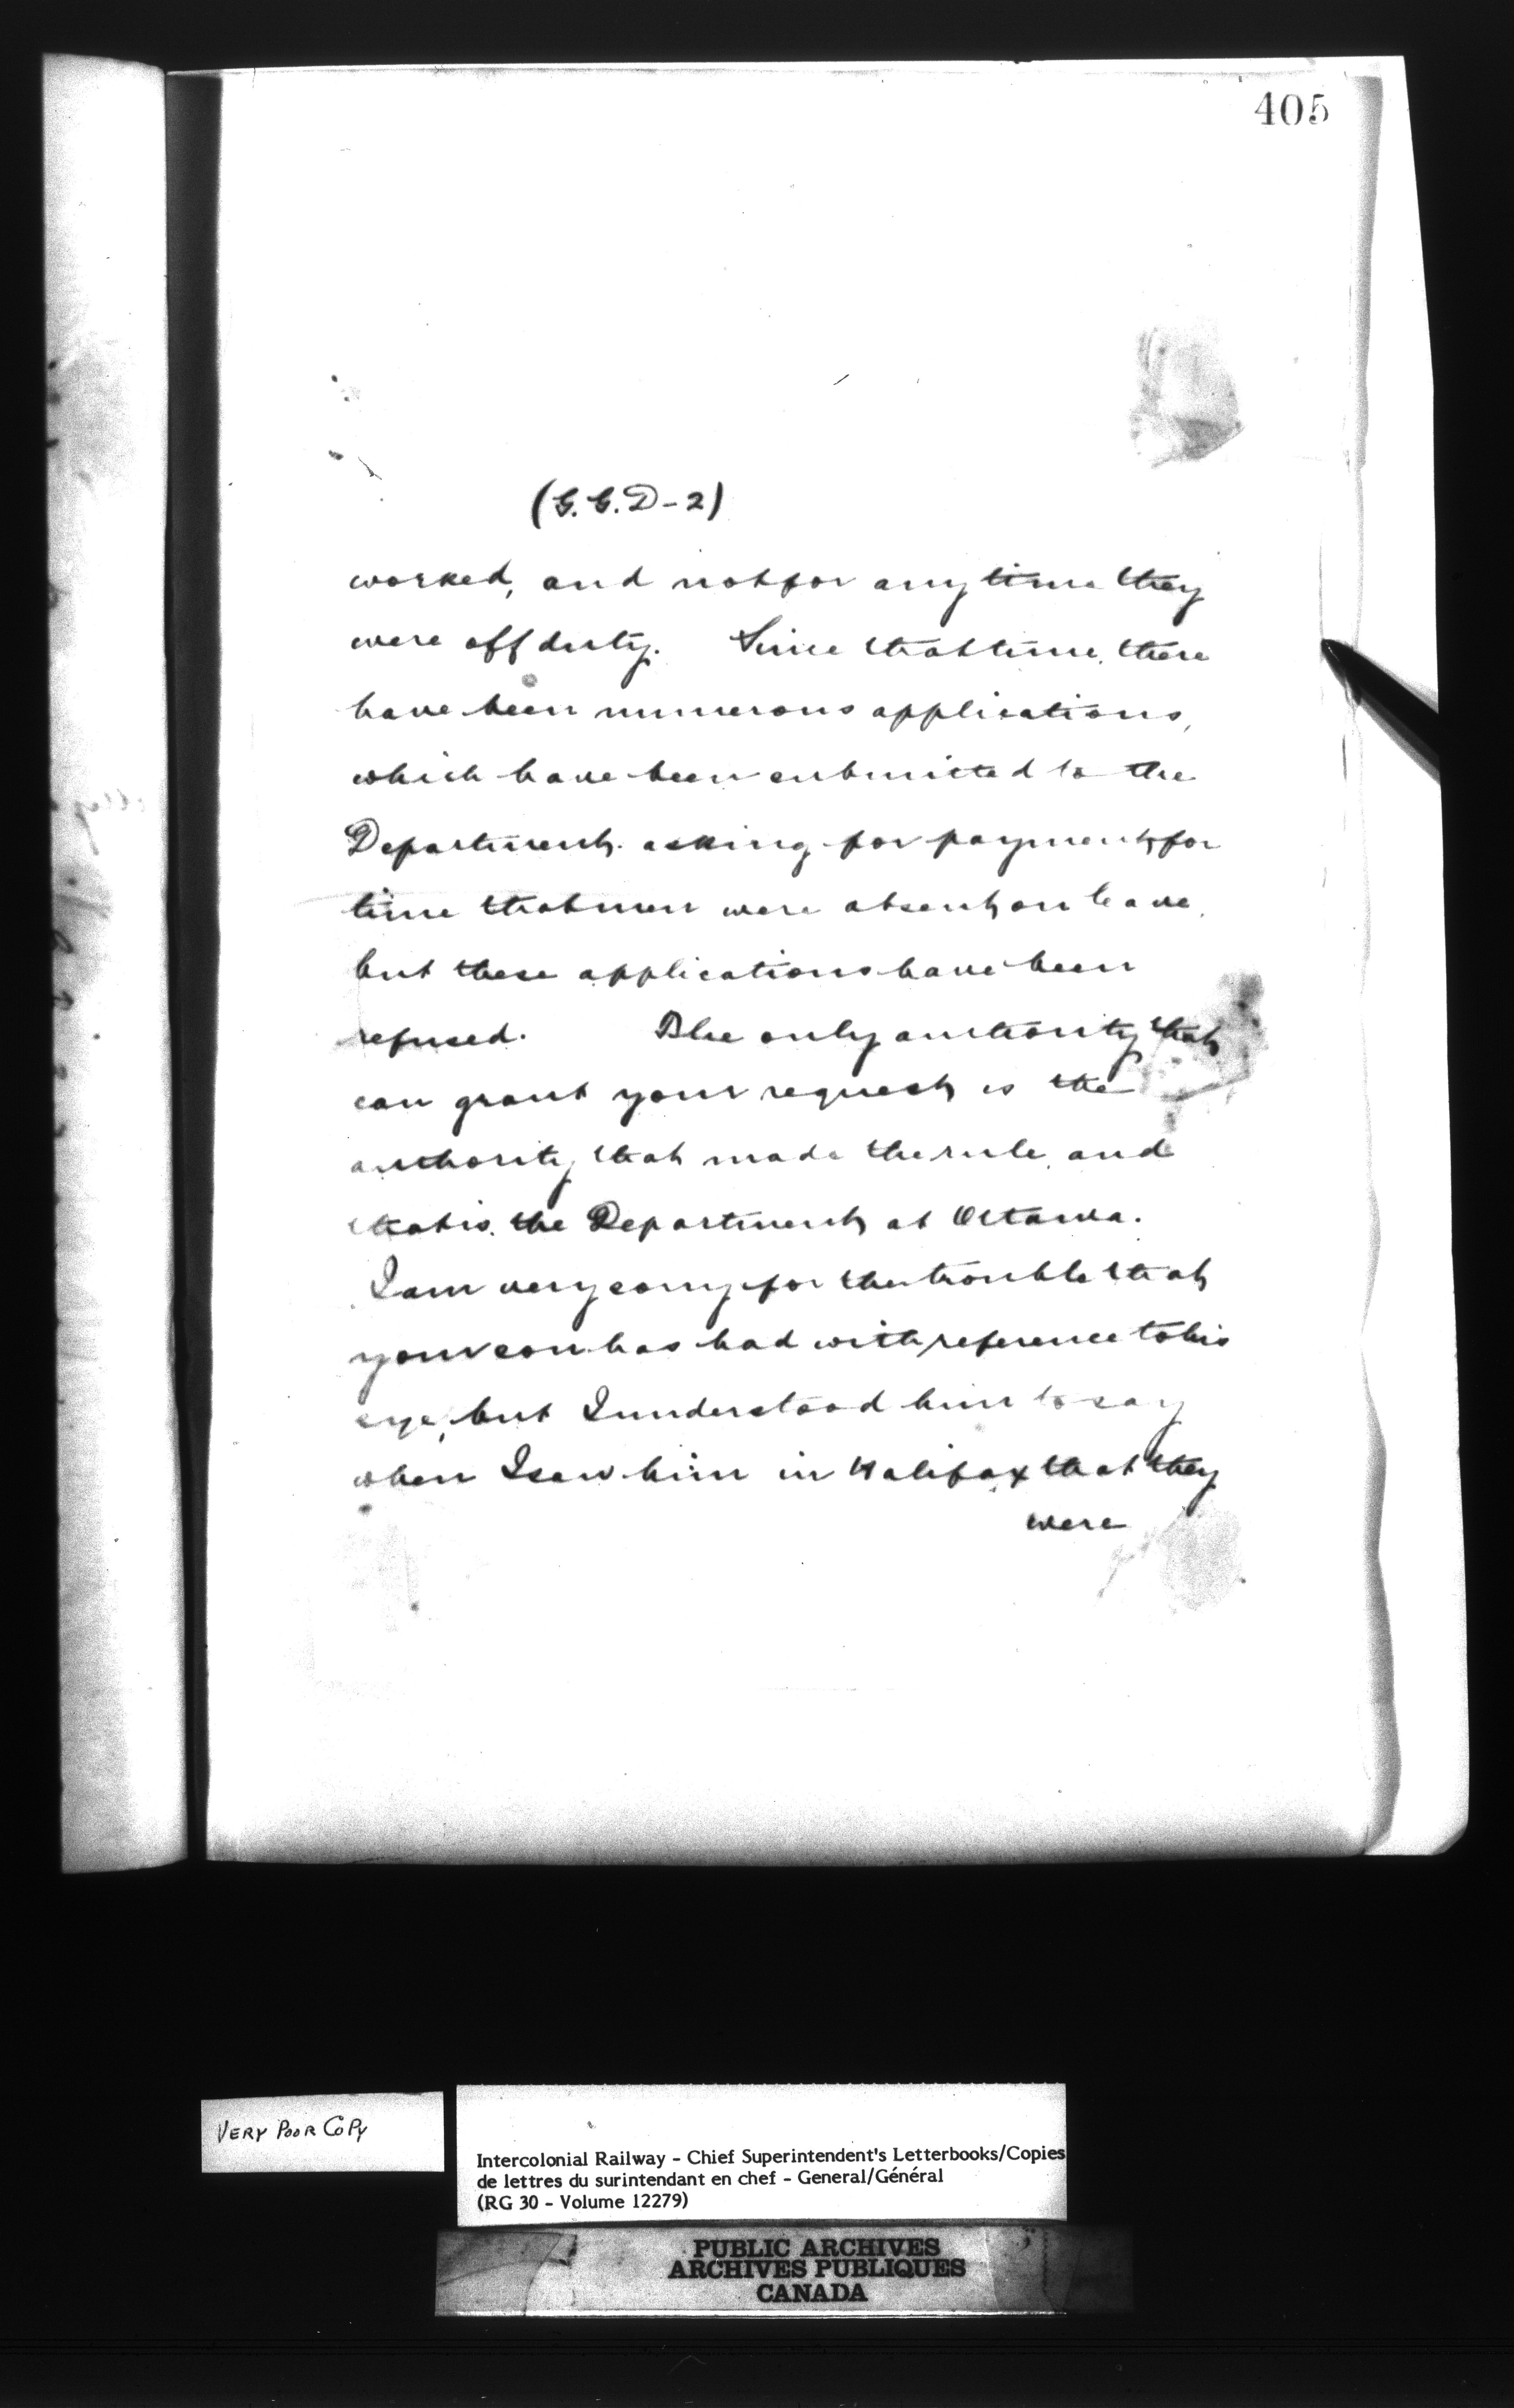 405
(G.G.D-2)
worked, and not for any time they
were off duty. Since that time, there
have been numerous applications,
which have been submitted to the
Department, asking for payment for
time that men were absent on leave,
but these applications have been
refused. The only authority that
can grant your request is the
authority that made the rule, and
that is, the Department at Ottawa.
I am very sorry for the trouble that
your son has had with reference to his
eye, but I understood him to say
when I saw him in Halifax that they
were
VERY POOR COPY
Intercolonial Railway - Chief Superintendent's Letterbooks/Copies
de lettres du surintendant en chef - General/Général
(RG 30 - Volume 12279)
PUBLIC ARCHIVES
ARCHIVES PUBLIQUES
CANADA